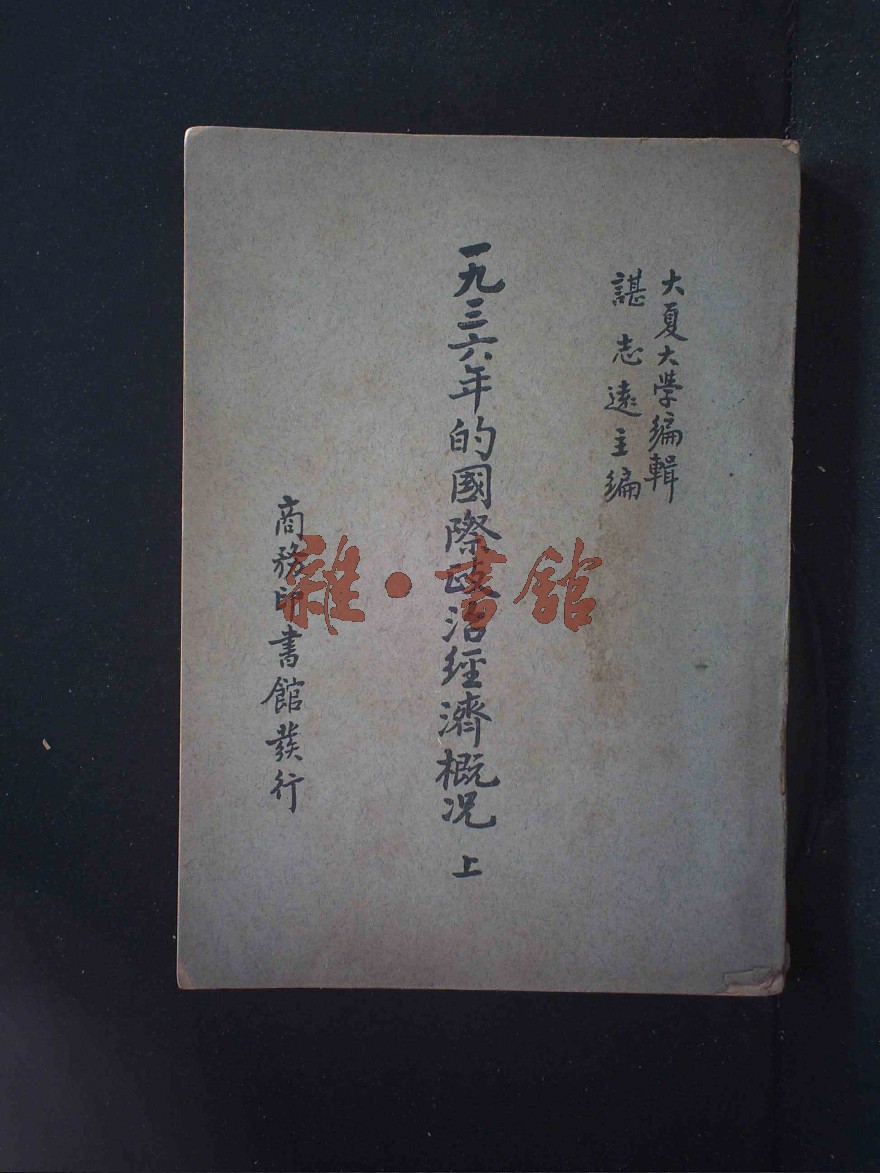 大夏大學編輯
諶志遠主編
一九三六年的國際政治經濟概況 上
商務印書館發行
雜·書館